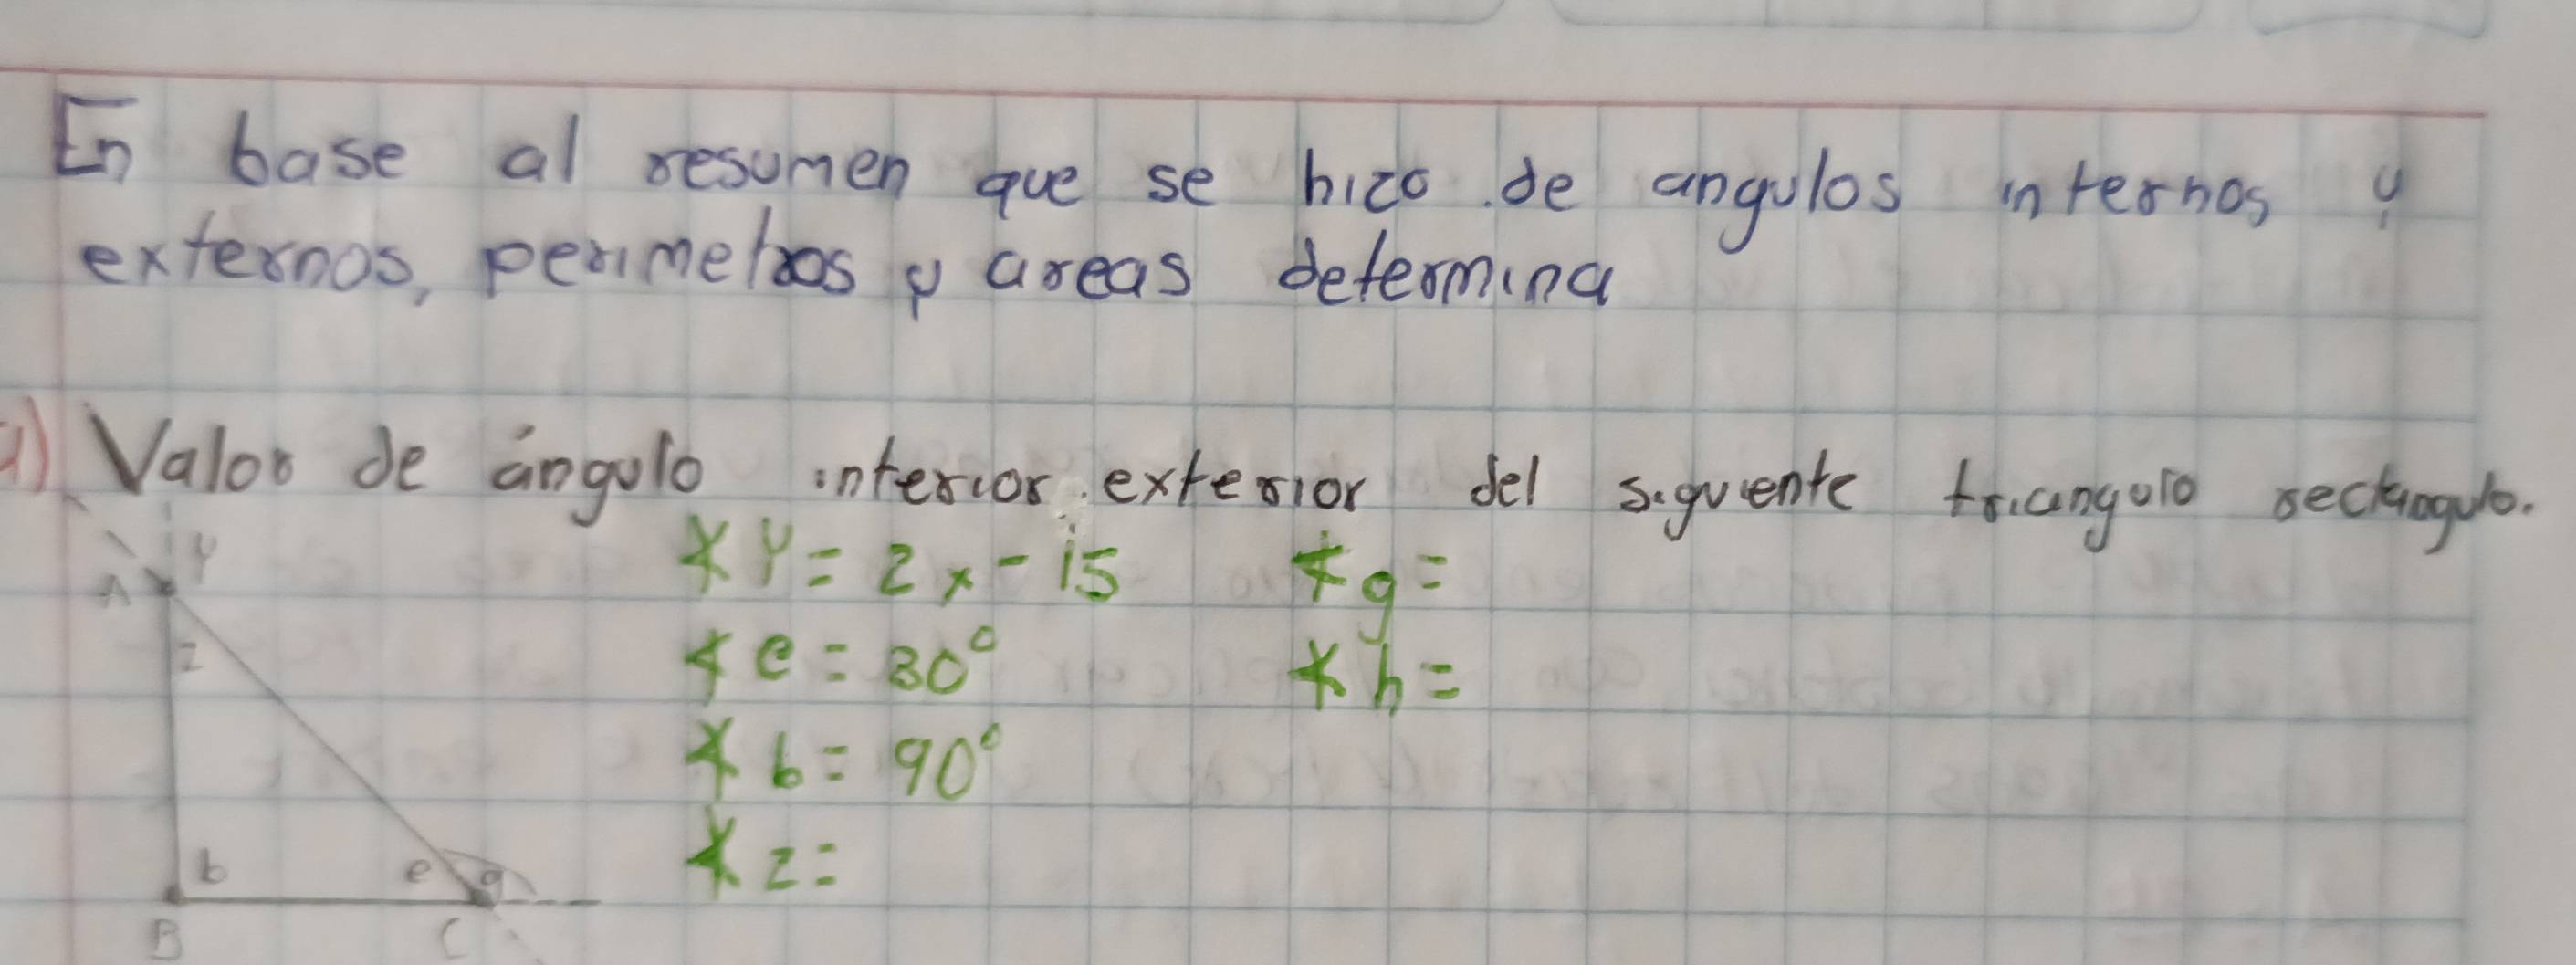 En base al resumen que se hizo de angulos internos y
externos, perimetros y areas determina
a) Valor de ángulo interior exterior del siguiente triangulo rectangulo.
Y
A
∡ Y = 2x - 15
∡ g =
z
∡ e = 30°
∡ h =
∡ b = 90°
∡ z =
b
e
g
B
C